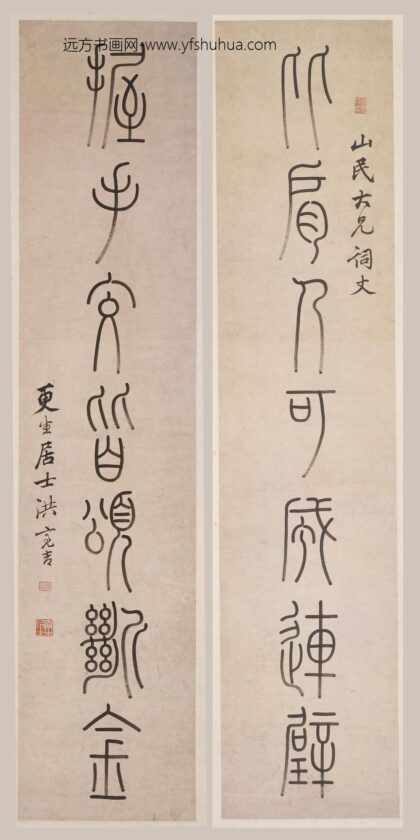 远方书画网-www.yfshuhua.com
山民大兄詞丈
比肩人可成連璧
握手交皆頌斷金
更生居士洪亮吉